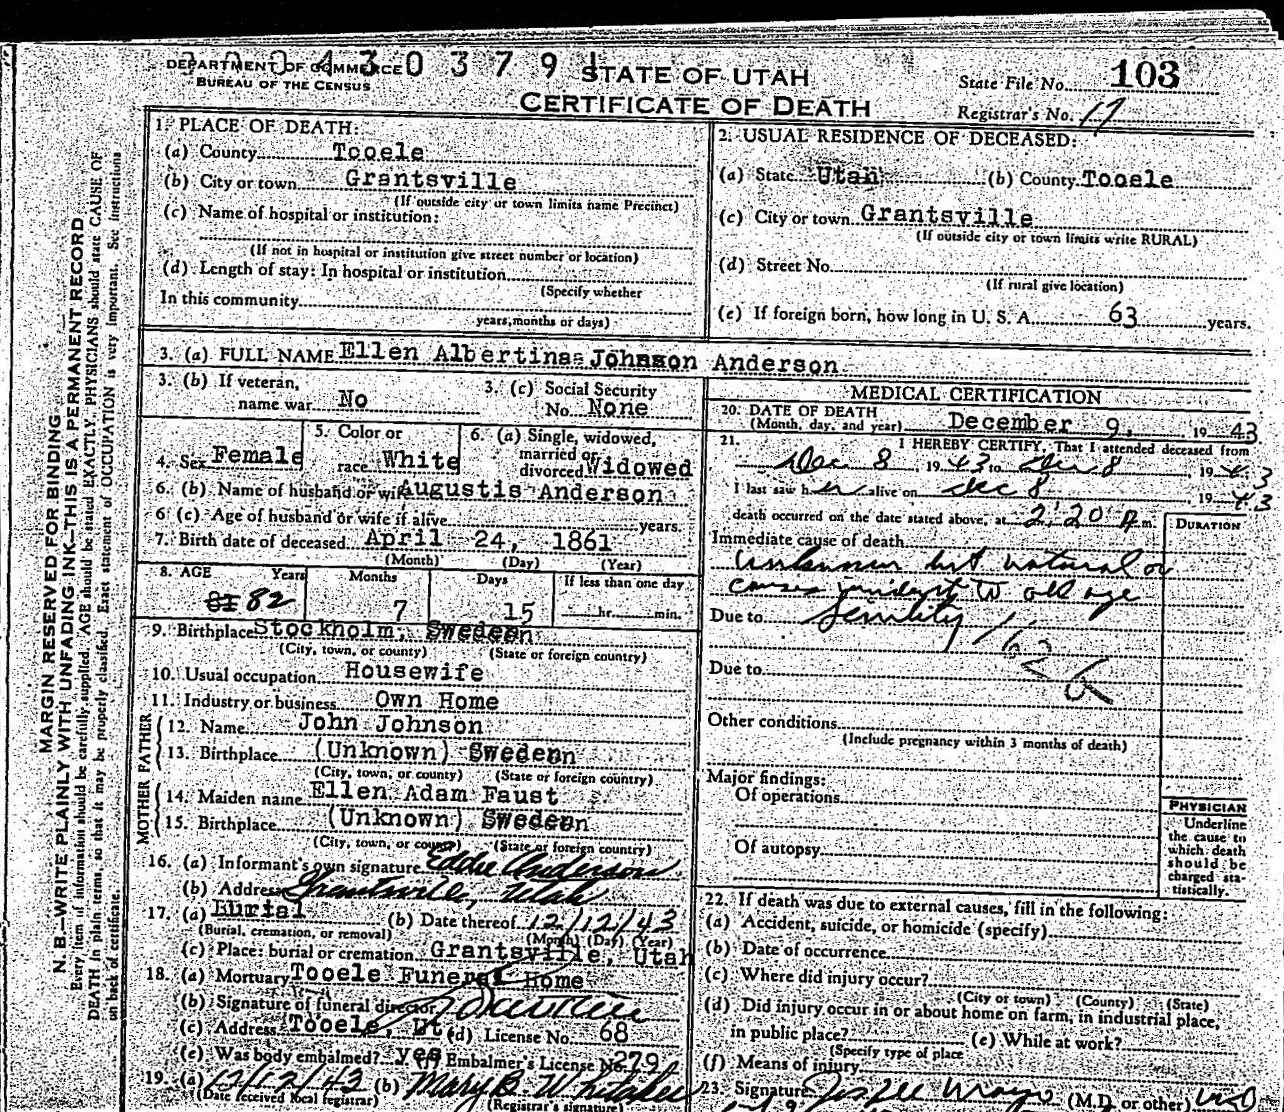 DEPARTMENT OF COMMERCE
BUREAU OF THE CENSUS
STATE OF UTAH
CERTIFICATE OF DEATH
State File No. 103
Registrar's No. 17
MARGIN RESERVED FOR BINDING
N. B.—WRITE PLAINLY WITH UNFADING INK—THIS IS A PERMANENT RECORD
Every item of information should be carefully supplied. AGE should be stated EXACTLY. PHYSICIANS should state CAUSE OF
DEATH in plain terms, so that it may be properly classified. Exact statement of OCCUPATION is very important. See instructions
on back of certificate.
1. PLACE OF DEATH:
(a) County Tooele
(b) City or town Grantsville
(If outside city or town limits name Precinct)
(c) Name of hospital or institution:
(If not in hospital or institution give street number or location)
(d) Length of stay: In hospital or institution
(Specify whether
In this community
years, months or days)
2. USUAL RESIDENCE OF DECEASED:
(a) State Utah (b) County Tooele
(c) City or town Grantsville
(If outside city or town limits write RURAL)
(d) Street No.
(If rural give location)
(e) If foreign born, how long in U. S. A. 63 years.
3. (a) FULL NAME Ellen Albertina Johnson Anderson
3. (b) If veteran, name war No
3. (c) Social Security No. None
4. Sex Female
5. Color or race White
6. (a) Single, widowed, married or divorced Widowed
6. (b) Name of husband or wife Augustis Anderson
6 (c) Age of husband or wife if alive years.
7. Birth date of deceased April 24, 1861
(Month) (Day) (Year)
8. AGE Years Months Days If less than one day
81 82 7 15 hr. min.
9. Birthplace Stockholm, Sweden
(City, town, or county) (State or foreign country)
10. Usual occupation Housewife
11. Industry or business Own Home
FATHER
12. Name John Johnson
13. Birthplace (Unknown) Sweden
(City, town, or county) (State or foreign country)
MOTHER
14. Maiden name Ellen Adam Faust
15. Birthplace (Unknown) Sweden
(City, town, or county) (State or foreign country)
16. (a) Informant's own signature Eddie Anderson
(b) Address Grantsville, Utah
17. (a) Burial (b) Date thereof 12/12/43
(Burial, cremation, or removal) (Month) (Day) (Year)
(c) Place: burial or cremation Grantsville, Utah
18. (a) Mortuary Tooele Funeral Home
(b) Signature of funeral director
(c) Address Tooele, Ut (d) License No. 68
(e) Was body embalmed? yes Embalmer's License No. 279
19. (a) 12/12/43 (b) Mary B. Whitaker
(Date received local registrar) (Registrar's signature)
MEDICAL CERTIFICATION
20. DATE OF DEATH
(Month, day, and year) December 9, 19 43
21. I HEREBY CERTIFY, That I attended deceased from
Dec 8, 19 43 to Dec 8 19 43
I last saw her alive on Dec 8, 19 43
death occurred on the date stated above, at 2:20 A m.
DURATION
Immediate cause of death
unknown but natural or
causes incident to old age
Due to Senility 162b
Due to
Other conditions
(Include pregnancy within 3 months of death)
Major findings:
Of operations
Of autopsy
PHYSICIAN
Underline
the cause to
which death
should be
charged sta-
tistically.
22. If death was due to external causes, fill in the following:
(a) Accident, suicide, or homicide (specify)
(b) Date of occurrence
(c) Where did injury occur?
(City or town) (County) (State)
(d) Did injury occur in or about home on farm, in industrial place,
in public place? (e) While at work?
(Specify type of place
(f) Means of injury
23. Signature (M.D. or other)